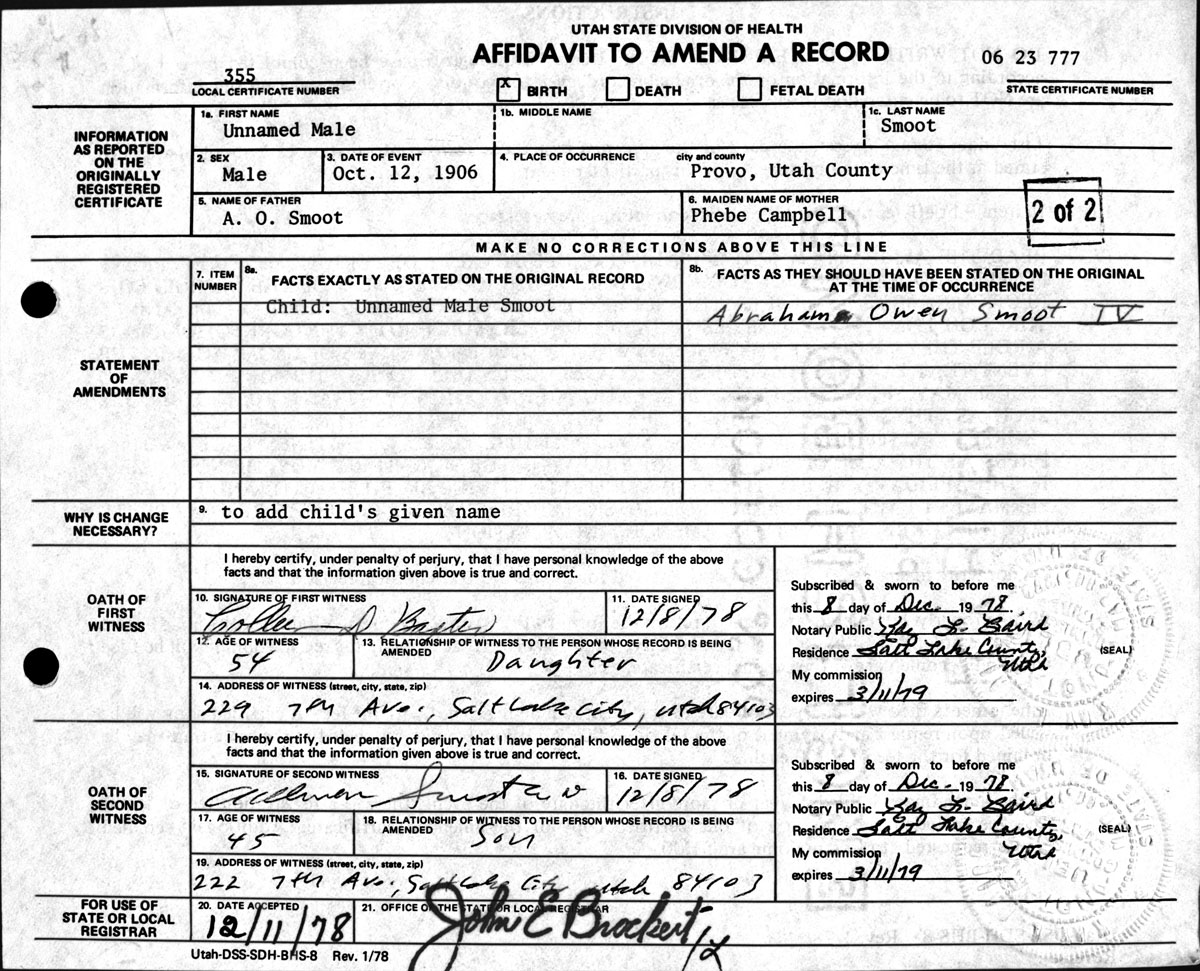 UTAH STATE DIVISION OF HEALTH
AFFIDAVIT TO AMEND A RECORD
06 23 777
355
LOCAL CERTIFICATE NUMBER
X BIRTH DEATH FETAL DEATH
STATE CERTIFICATE NUMBER
INFORMATION AS REPORTED ON THE ORIGINALLY REGISTERED CERTIFICATE
1a. FIRST NAME 1b. MIDDLE NAME 1c. LAST NAME
Unnamed Male Smoot
2. SEX 3. DATE OF EVENT 4. PLACE OF OCCURRENCE city and county
Male Oct. 12, 1906 Provo, Utah County
5. NAME OF FATHER 6. MAIDEN NAME OF MOTHER
A. O. Smoot Phebe Campbell
2 of 2
MAKE NO CORRECTIONS ABOVE THIS LINE
STATEMENT OF AMENDMENTS
7. ITEM NUMBER
8a. FACTS EXACTLY AS STATED ON THE ORIGINAL RECORD
8b. FACTS AS THEY SHOULD HAVE BEEN STATED ON THE ORIGINAL
AT THE TIME OF OCCURRENCE
Child: Unnamed Male Smoot
Abraham Owen Smoot IV
WHY IS CHANGE NECESSARY?
9. to add child's given name
OATH OF FIRST WITNESS
I hereby certify, under penalty of perjury, that I have personal knowledge of the above
facts and that the information given above is true and correct.
10. SIGNATURE OF FIRST WITNESS 11. DATE SIGNED
D Baxter 12/8/78
12. AGE OF WITNESS 13. RELATIONSHIP OF WITNESS TO THE PERSON WHOSE RECORD IS BEING AMENDED
54 Daughter
14. ADDRESS OF WITNESS (street, city, state, zip)
229 7th Ave., Salt Lake City, Utah 84103
Subscribed & sworn to before me
this 8 day of Dec. 1978.
Notary Public Kay L. Baird
Residence Salt Lake County, Utah
(SEAL)
My commission
expires 3/11/79
OATH OF SECOND WITNESS
I hereby certify, under penalty of perjury, that I have personal knowledge of the above
facts and that the information given above is true and correct.
15. SIGNATURE OF SECOND WITNESS 16. DATE SIGNED
12/8/78
17. AGE OF WITNESS 18. RELATIONSHIP OF WITNESS TO THE PERSON WHOSE RECORD IS BEING AMENDED
45 Son
19. ADDRESS OF WITNESS (street, city, state, zip)
222 7th Ave, Salt Lake City Utah 84103
Subscribed & sworn to before me
this 8 day of Dec. 1978.
Notary Public Kay L. Baird
Residence Salt Lake County, Utah
(SEAL)
My commission
expires 3/11/79
FOR USE OF STATE OR LOCAL REGISTRAR
20. DATE ACCEPTED 21. OFFICE OF THE STATE OR LOCAL REGISTRAR
12/11/78 John E Brockert
Utah-DSS-SDH-BHS-8 Rev. 1/78